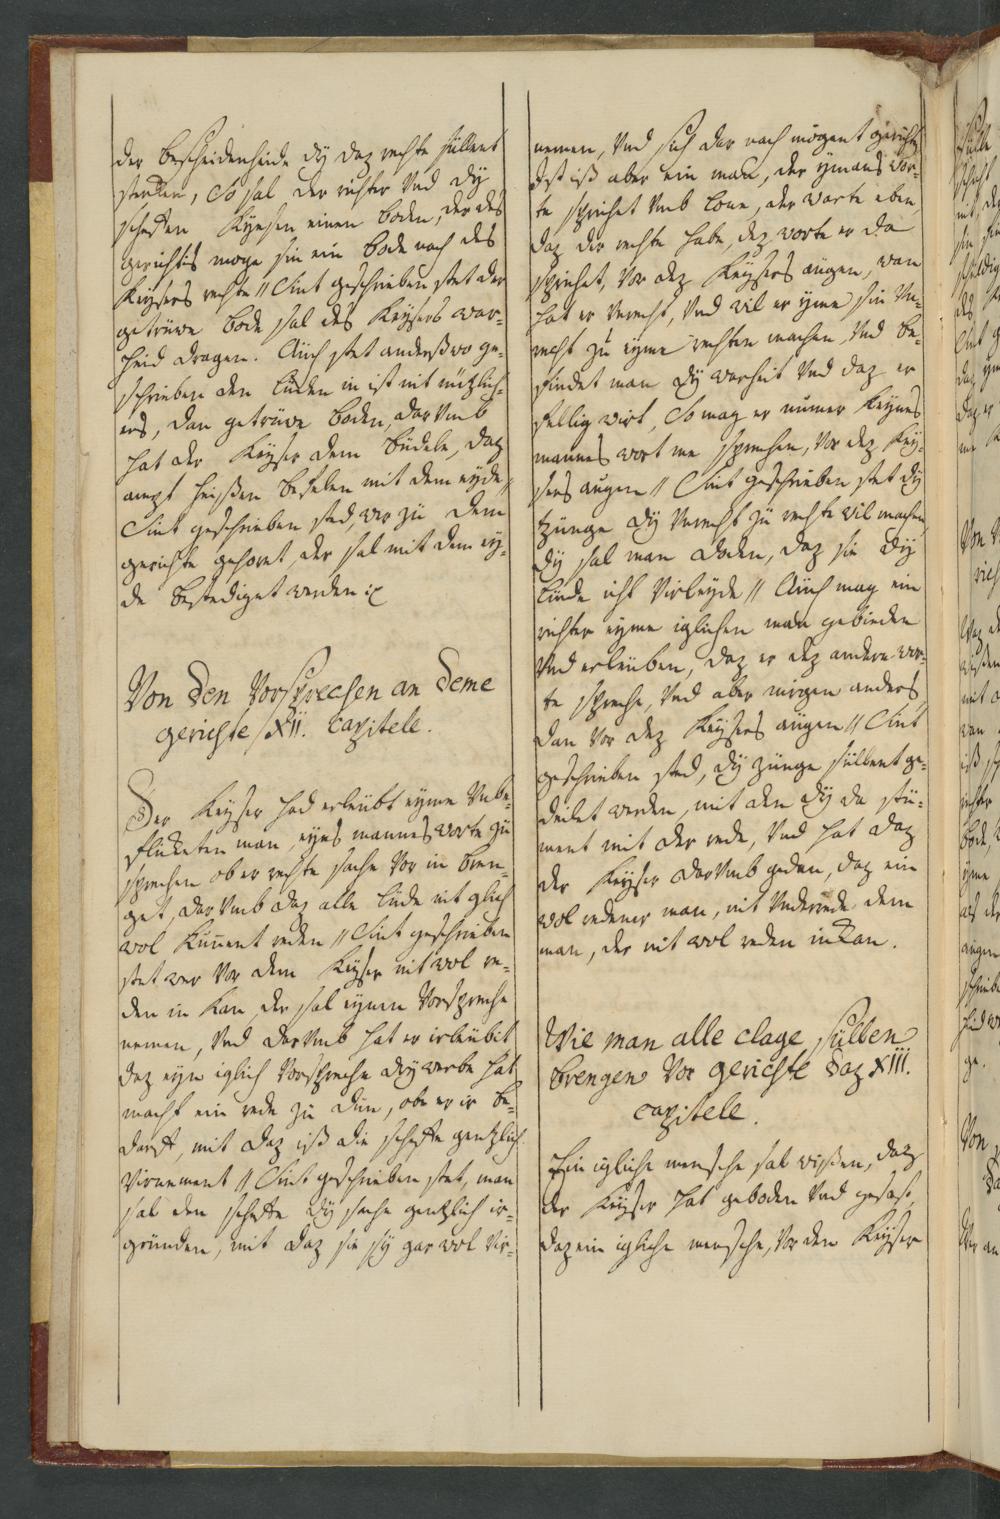 der bescheidenheide dÿ daz rechte süllent
sterken, So sal der richter Vnd dÿ
scheffen kÿesen einen boden, der des
gerichtis moge sin ein bode nach des
Keÿsers rechte // Sint geschrieben stet der
getrüwe bode sal des Keÿsers war=
heid dragen. Auch stet anderßwo ge=
schrieben den lüden in ist nit nützlich=
ers, dan getrüwe boden, dar Vmb
hat der Keÿser dem büdele, daz
ampt heißen befelen mit dem eÿde //
Sint geschrieben sted, wer zü dem
gerichte gehoret der sal mit dem eÿ=
de bestediget werden
Von den Vorsprechen an deme
gerichte / XII. Capitele.
Der Keÿser had erleubt eÿme Vnbe=
flecketen man, eÿns mannes worte zü
sprechen ob er rechte sache Vor in bren=
get, dar Vmb daz alle lüde nit glich
wol künnent reden // Sint geschrieben
stet wer Vor dem Keÿser nit wol re=
den in kan der sal eÿnen Vorspreche
nemen, Vnd dar Vmb hat er irleübit
daz eÿn iglich Vorspreche drÿ werbe hat
macht ein rede zu dün, obe er ir be=
darff, mit daz iß die scheffe gentzlich
Virnement // Sint geschrieben stet, man
sal den scheffe dÿ sache gentzlich ir=
gründen, mit daz sie sÿ gar wol Vir=
nemen, Vnd sich dar nach mögent gerichte
Ist iß aber ein man, der ÿmans wor=
te sprichet Vmb lone, der warte eben,
daz der rechte habe, dez worte er da
sprichet, Vor dez Keÿsers augen, wan
hat er Vnrecht, Vnd wil er ÿme sin Vn=
recht zü eÿme rechten machen, Vnd be=
findet man dÿ warheit Vnd daz er
fellig wirt, So mag er nümer keÿnes
mannes wort me sprechen, Vor dez Keÿ=
sers augen // Sint geschrieben stet dÿ
zünge dÿ Vnrecht zü rechte wil machen
dÿ sal man doden, daz sie dÿ
lüde icht Virleÿde // Auch mag ein
richter eÿme iglichen man gebieden
Vnd erleuben, daz er dez andern wor=
te spreche, Vnd aber nirgen anders
dan Vor dez Keÿsers augen // Sint
geschrieben sted, dÿ zünge süllent ge=
deilet werden, mit den dÿ da stü=
ment mit der rede, Vnd hat daz
der Keÿser dar Vmb gedan, daz ein
wol redener man, nit Vnderrede dem
man, der nit wol reden inkan.
Wie man alle clage süllen
brengen Vor gerichte daz XIII.
capitele.
Ein igliche mensche sal wißen, daz
der Keÿser hat geboden Vnd gesast,
daz ein igliche mensche, Vor den Keÿser